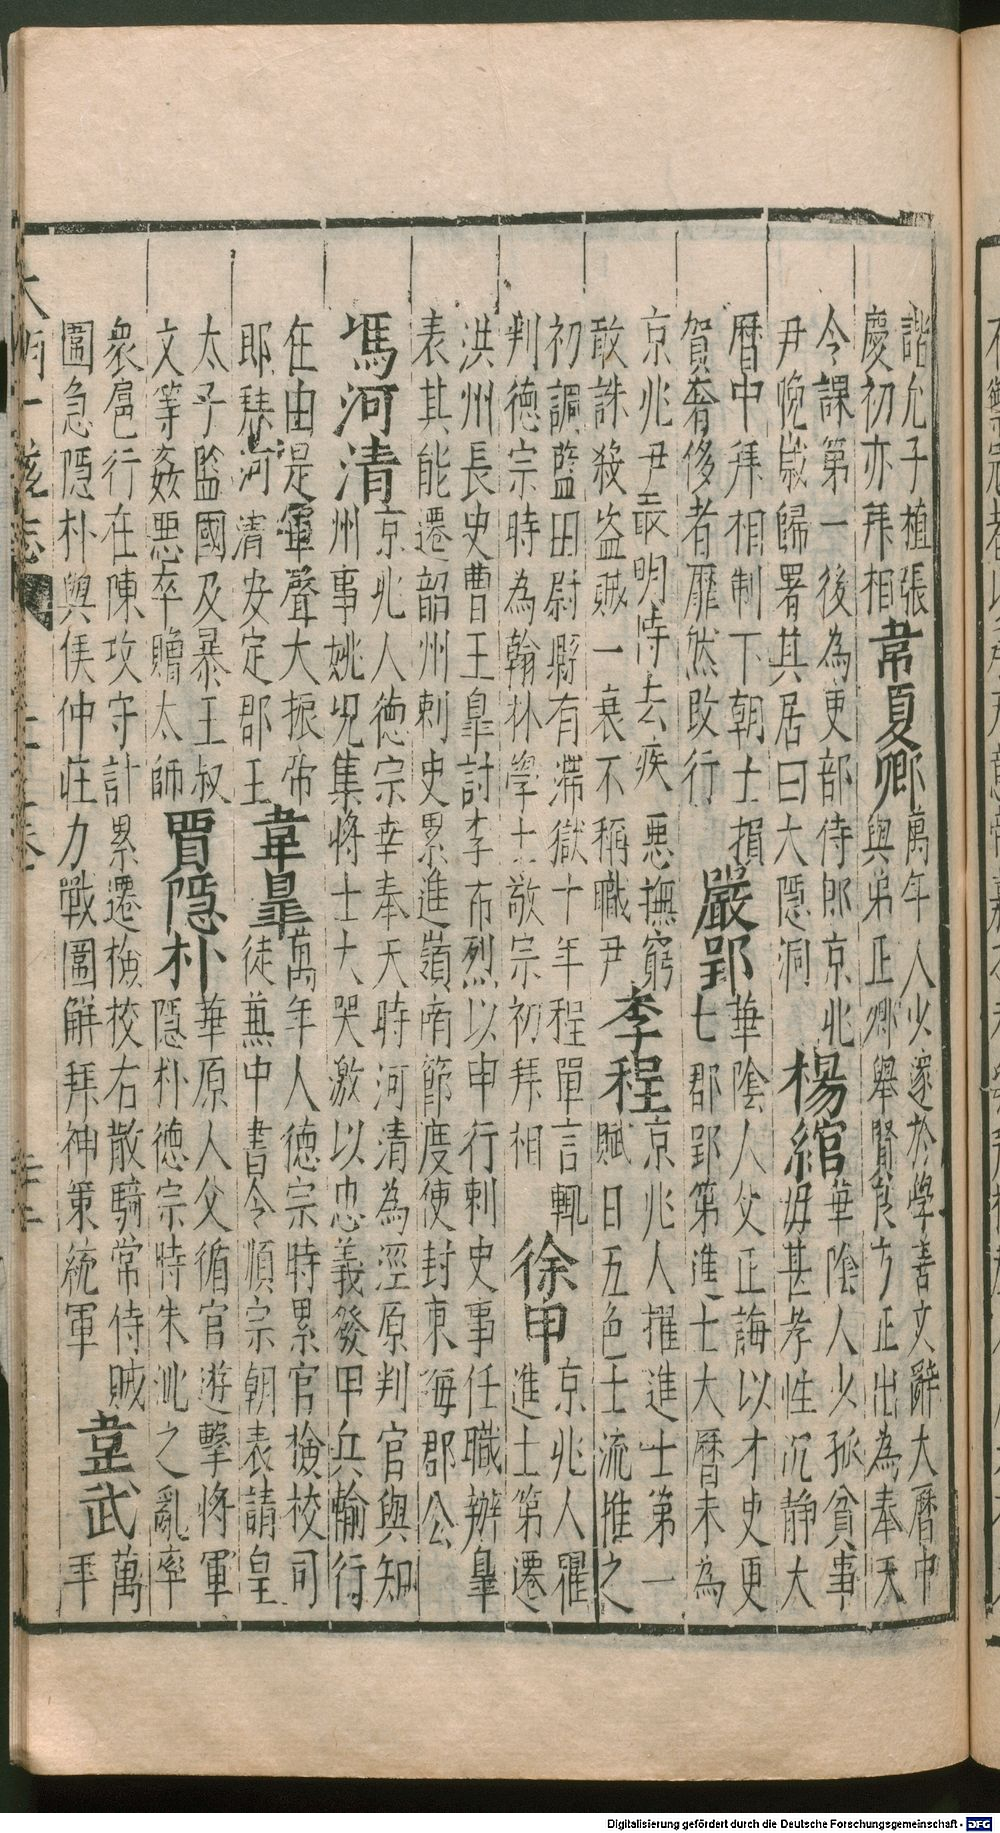 諧允子植張
慶初亦拜相
韋夏卿
萬年人少邃於學善文辭大曆中
與弟正卿舉賢良方正出為奉天
令課第一後為吏部侍郎京兆
尹晚歲歸署其居曰大隱洞
楊綰
華陰人少孤貧事
母甚孝性沉静大
曆中拜相制下朝士損
賀奢侈者靡然改行
嚴郢
華陰人父正誨以才吏更
七郡郢第進士大曆末為
京兆尹嚴明持法疾惡撫窮
敢誅殺盗賊一衰不稱職尹
李程
京兆人擢進士第一
賦日五色士流推之
初調藍田尉縣有滯獄十年程單言輒
判德宗時為翰林學士敬宗初拜相
徐申
京兆人擢
進士第遷
洪州長史曹王皐討李希烈以申行刺史事任職辦皐
表其能遷韶州刺史累進嶺南節度使封東海郡公
馮河清
京兆人德宗幸奉天時河清為涇原判官與知
州事姚况集將士大哭激以忠義發甲兵輸行
在由是軍聲大振帝
即拜河清安定郡王
韋皐
萬年人德宗時累官檢校司
徒兼中書令順宗朝表請皇
太子監國及暴王叔
文等姦惡卒贈太師
賈隱朴
華原人父循官遊擊將軍
隱朴德宗時朱泚之亂率
衆扈行在陳攻守計累遷檢校右散騎常侍賊
圍急隱朴與侯仲莊力戰圍解拜神策統軍
韋武
萬
年
Digitalisierung gefördert durch die Deutsche Forschungsgemeinschaft - DFG